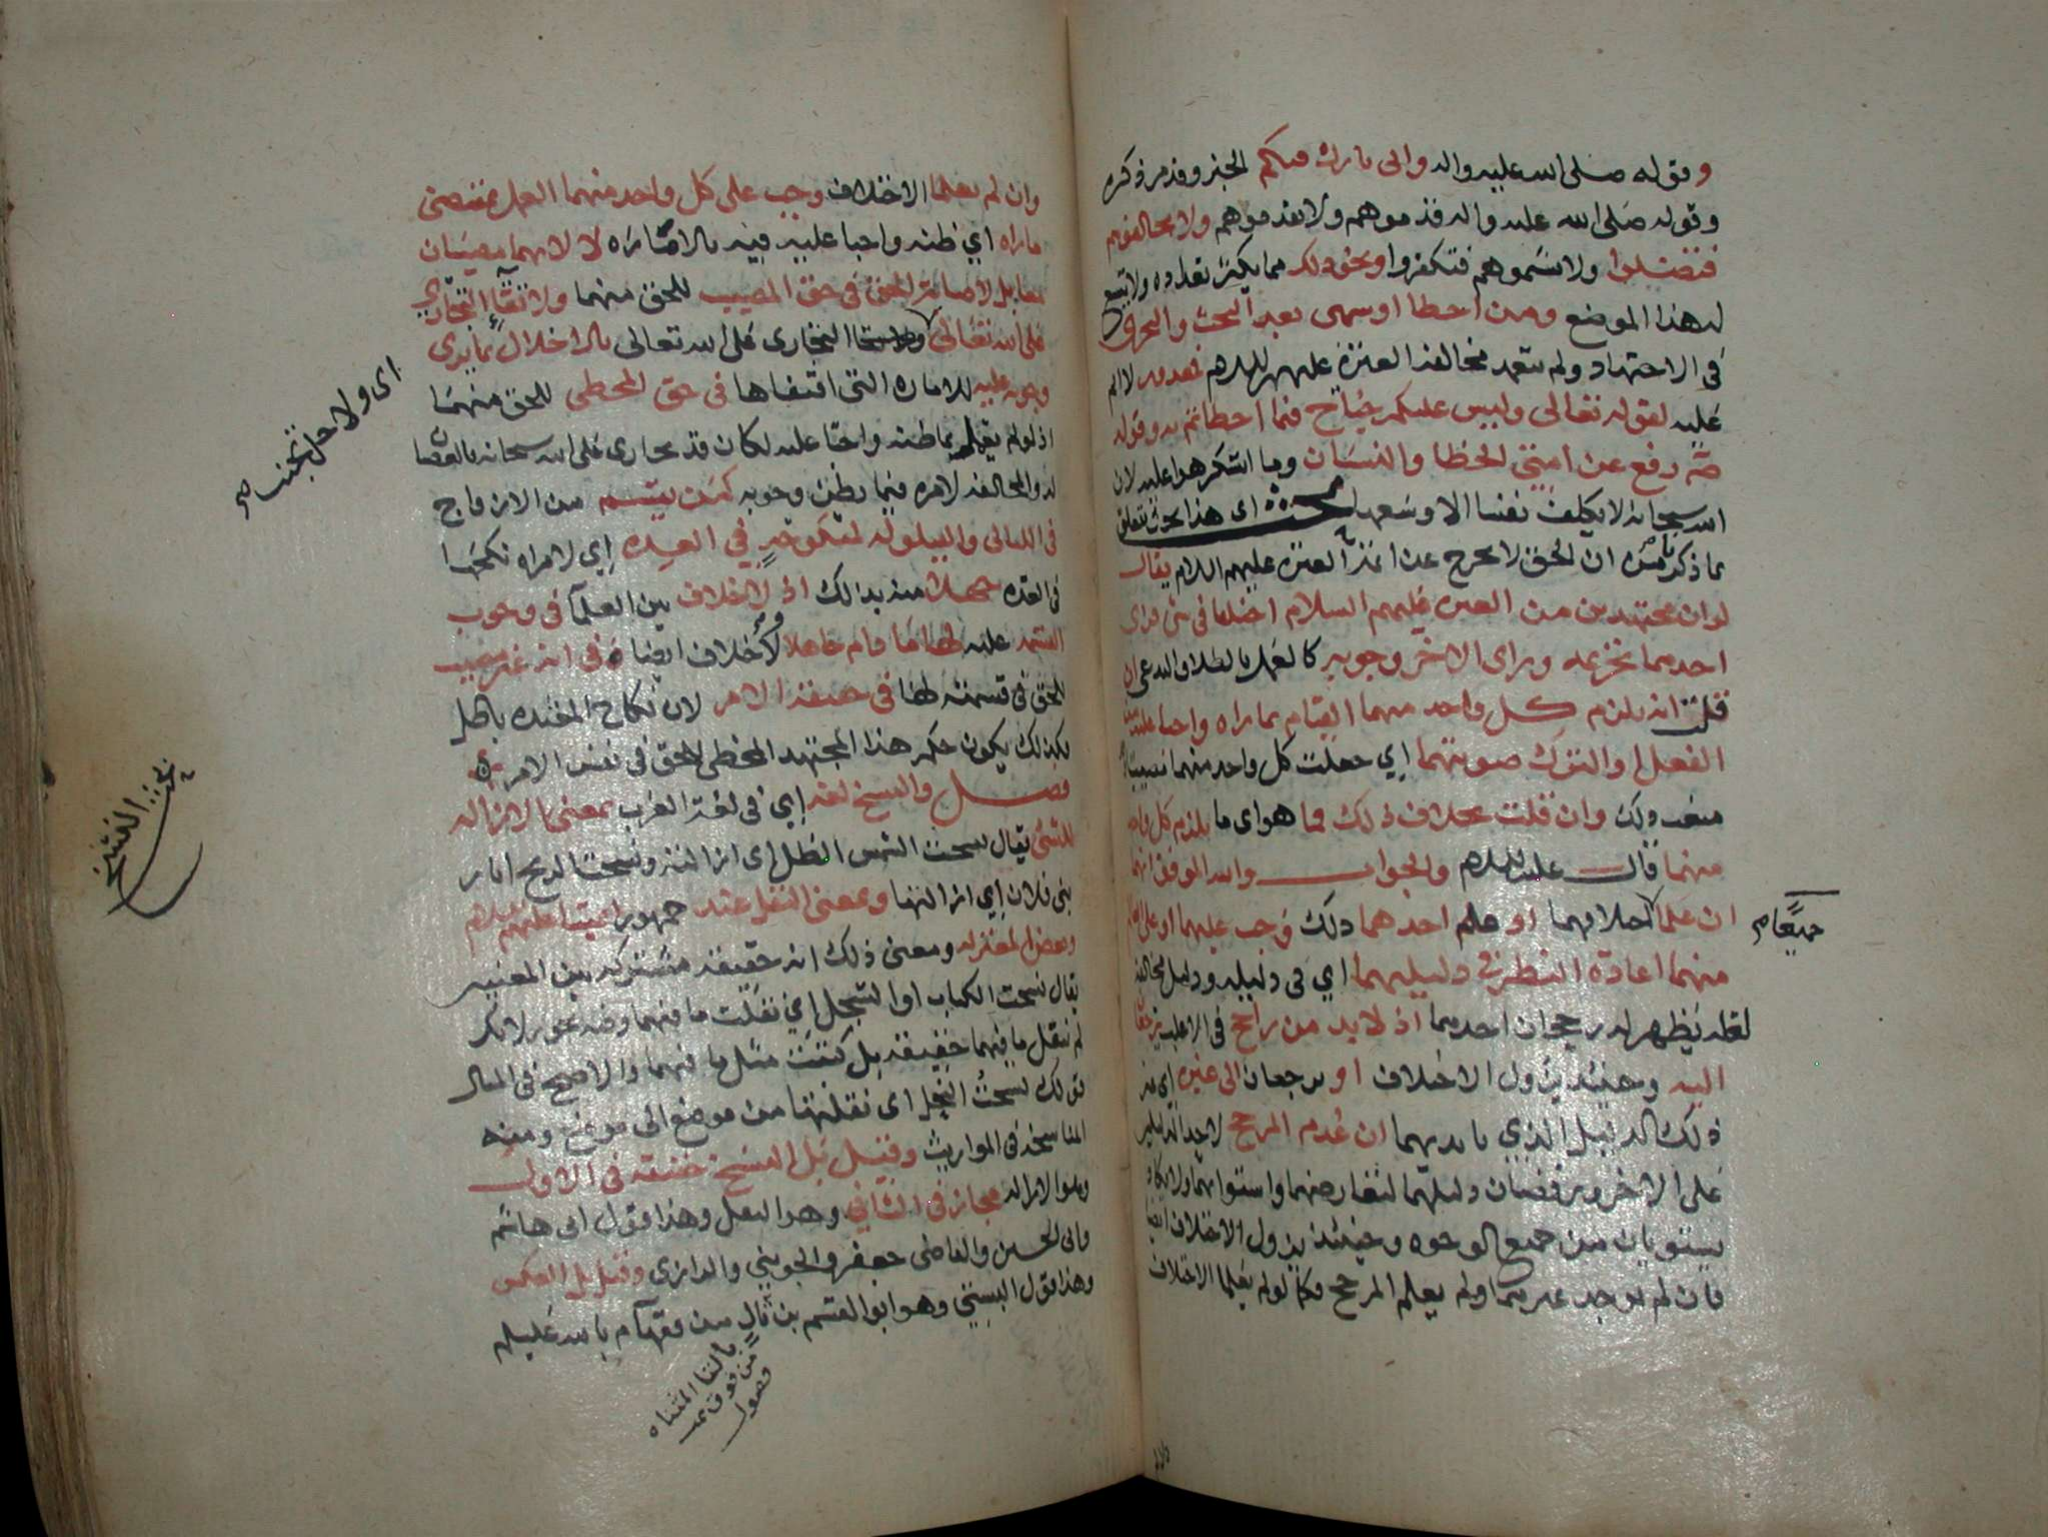 وقوله صلى الله عليه واله واني تارك فيكم الخبر وقد مر ذكره
وقوله صلى الله عليه واله قدموهم ولا تقدموهم ولا تخالفوهم
فتضلوا ولا تشتموهم فتكفروا ونحو ذلك مما يكثر تعداده ولا يتسع
له هذا الموضع ومن اخطا او سهى بعد البحث والتحري
في الاجتهاد ولم يتعمد مخالفة العترة عليهم السلام فمعذور لا اثم
عليه لقوله تعالى وليس عليكم جناح فيما اخطاتم به وقوله
صلم رفع عن امتي الخطا والنسيان وما استكرهوا عليه لان
الله سبحانه لا يكلف نفسا الا وسعها بحث اي هذا بحث يتعلق
بما ذكر من ان الحق لا يخرج عن ائمة العترة عليهم السلام يقال
لو ان مجتهدين من العترة عليهم السلام اختلفا في شي فراى
احدهما تحريمه وراى الاخر وجوبه كالعمل بالطلاق البدعي ان
قلت انه يلزم كل واحد منهما القيام بما راه واجبا عليه من
الفعل او الترك صوبتهما اي جعلت كل واحد منهما مصيبا
وان قلت بخلاف ذلك فما هو اي ما يلزم كل واحد
منهما قال عليه السلام والجواب والله الموفق انهما
ان علما اختلافهما او علم احدهما ذلك وجب عليهما او على العالم
جميعا صح
منهما اعادة النظر في دليليهما اي في دليله ودليل مخالفه
لعله يظهر له رجحان احدهما اذ لا بد من راجح في الاغلب يرجعان
اليه وحينئذ يزول الاختلاف او يرجعان الى غيره اي غير
ذلك الدليل الذي بايديهما ان عدم المرجح لاحد الدليلين
على الاخر ويرفضان دليليهما لتعارضهما واستوائهما ولا يكاد
يستويان من جميع الوجوه وحينئذ يزول الاختلاف ايضا
فان لم يوجد غيرهما ولم يعلم المرجح فكما لو لم يعلما الاختلاف
وان لم يعلما الاختلاف وجب على كل واحد منهما العمل بمقتضى
ما راه اي ظنه واجبا عليه فيه بالامارة لا لانهما مصيبان
معا بل لاصابة الحق في حق المصيب للحق منهما ولاتقاء التجاري
على الله تعالى التجاري على الله تعالى بالاخلال بما يرى
اي ولاجل تجنب صح
وجوبه عليه للامارة التي اقتفاها في حق المخطي للحق منهما
اذ لو لم يعمل بما ظنه واجبا عليه لكان قد تجارى على الله سبحانه بالعصيان
له والمخالفة لامره فيما يظن وجوبه كمن يقسم من الازواج
في الليالي والقيلولة لمنكوحة في العدة اي لامراة نكحها
في العدة جهلا منه بذلك اذ لا خلاف بين العلما في وجوب
القسمة عليه لها ما دام جاهلا ولا خلاف ايضا في انه غير مصيب
للحق في قسمته لها في حقيقة الامر لان نكاح المعتدة باطل
فكذلك يكون حكم هذا المجتهد المخطي للحق في نفس الامر
فصل والنسخ لغة اي في لغة العرب بمعنى الازالة
للشئ يقال نسخت الشمس الظل اي ازالته ونسخت الريح اثار
بني فلان اي ازالتها وبمعنى النقل عند جمهور ائمتنا عليهم السلام
وبعض المعتزلة ومعنى ذلك انه حقيقة مشتركة بين المعنيين
يقال نسخت الكتاب او السجل اي نقلت ما فيهما وفيه تجوز لانك
لم تنقل ما فيهما حقيقة بل كتبت مثل ما فيهما والاصح في المثال
قولك نسخت النحل اي نقلتها من موضع الى موضع ومنه
المناسخة في المواريث وقيل بل النسخ حقيقة في الاول
وهو الازالة مجاز في الثاني وهو النقل وهذا قول ابي هاشم
وابي الحسين والقاضي جعفر والجويني والرازي وقيل بل العكس
وهذا قول البستي وهو ابو القسم بن تال من فقهاء م بالله عليلم
بالتا المثناه
من فوق تمت
فصول